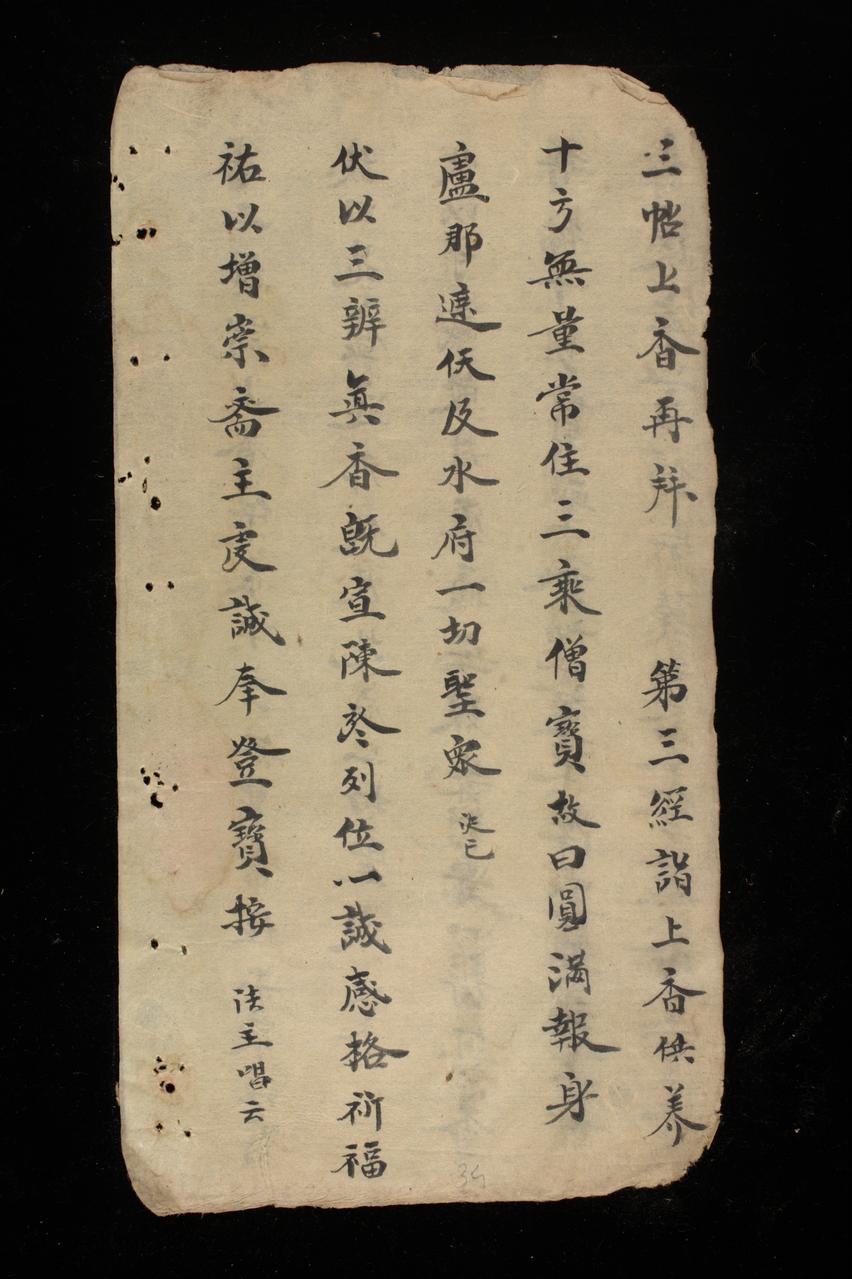 三帖上香再拜 第三經詣上香供养
十方無量常住三乘僧寶故曰圓满報身
盧那遮仸及水府一切聖衆 灻已
伏以三辦真香既宣陳於列位一誠感格祈福
祐以增崇斋主虔誠奉登寶按 法主唱云
34